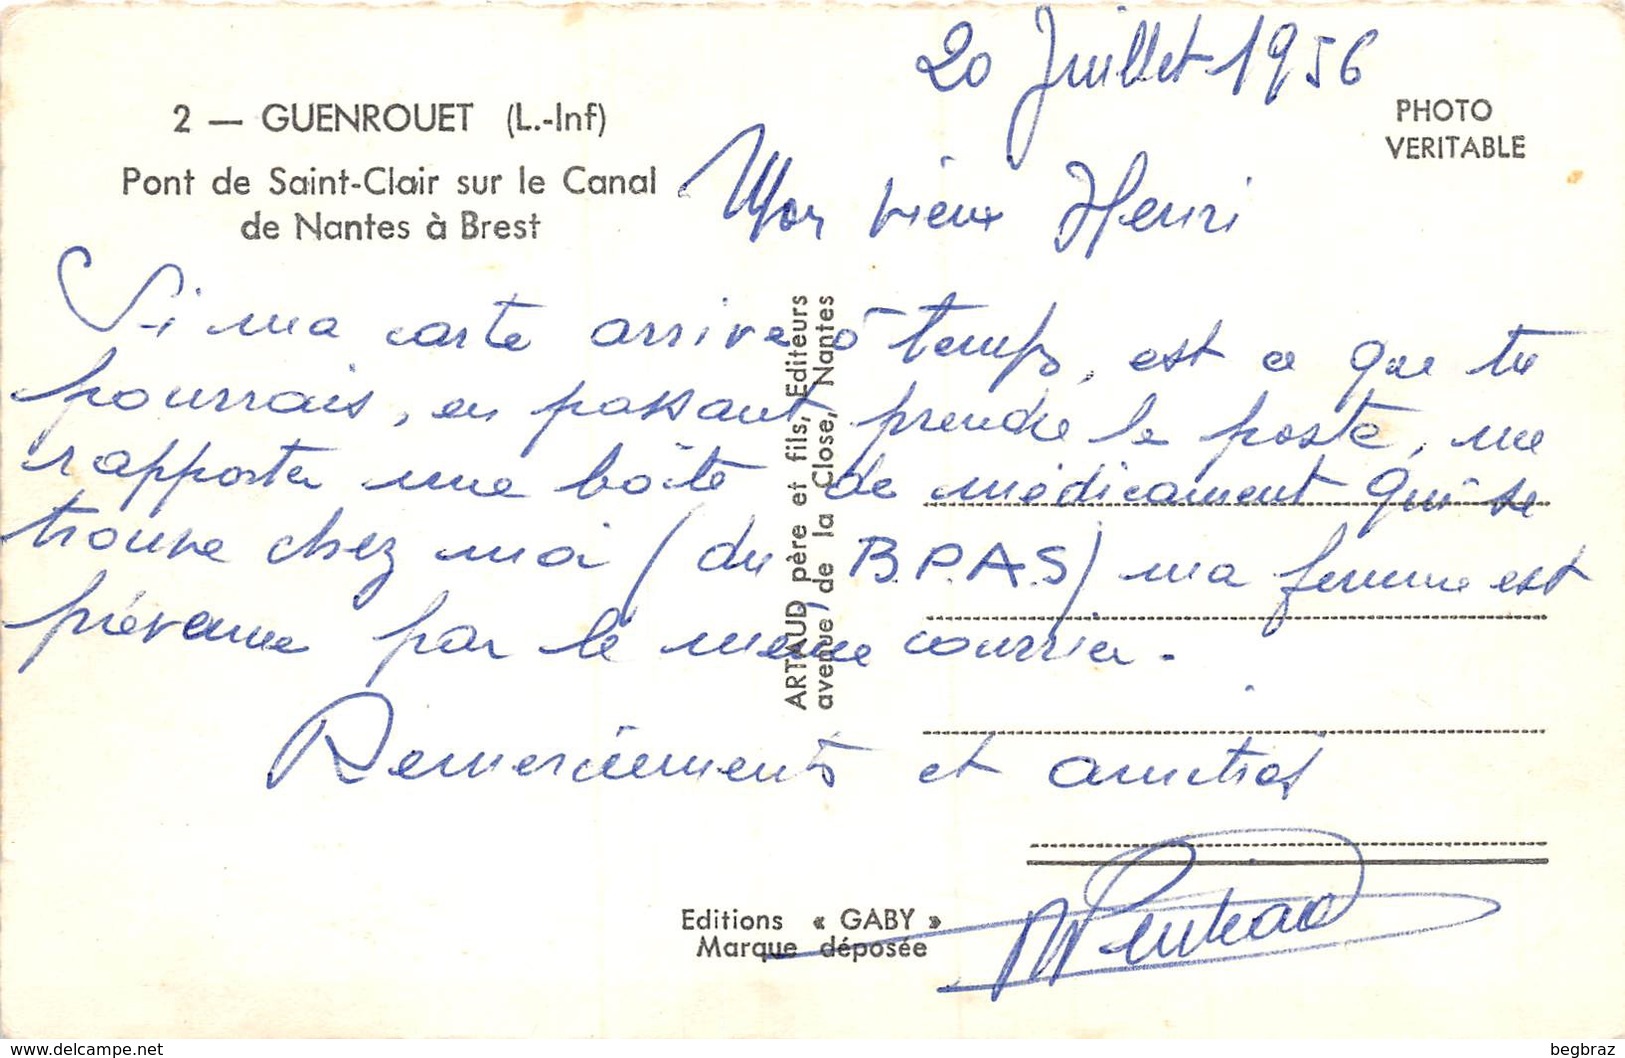 20 Juillet 1956
2 — GUENROUET (L.-Inf)
Pont de Saint-Clair sur le Canal
de Nantes à Brest
PHOTO
VERITABLE
Mon vieux Henri
Si ma carte arrive à temps, est ce que tu
pourrais, en passant prendre le poste, me
rapporter une boîte de médicament qui se
trouve chez moi (du B.P.A.S) ma femme est
prévenue par le même courrier.
Remerciements et amitiés
ARTAUD père et fils, Editeurs
avenue de la Close, Nantes
Editions « GABY »
Marque déposée
www.delcampe.net
begbraz